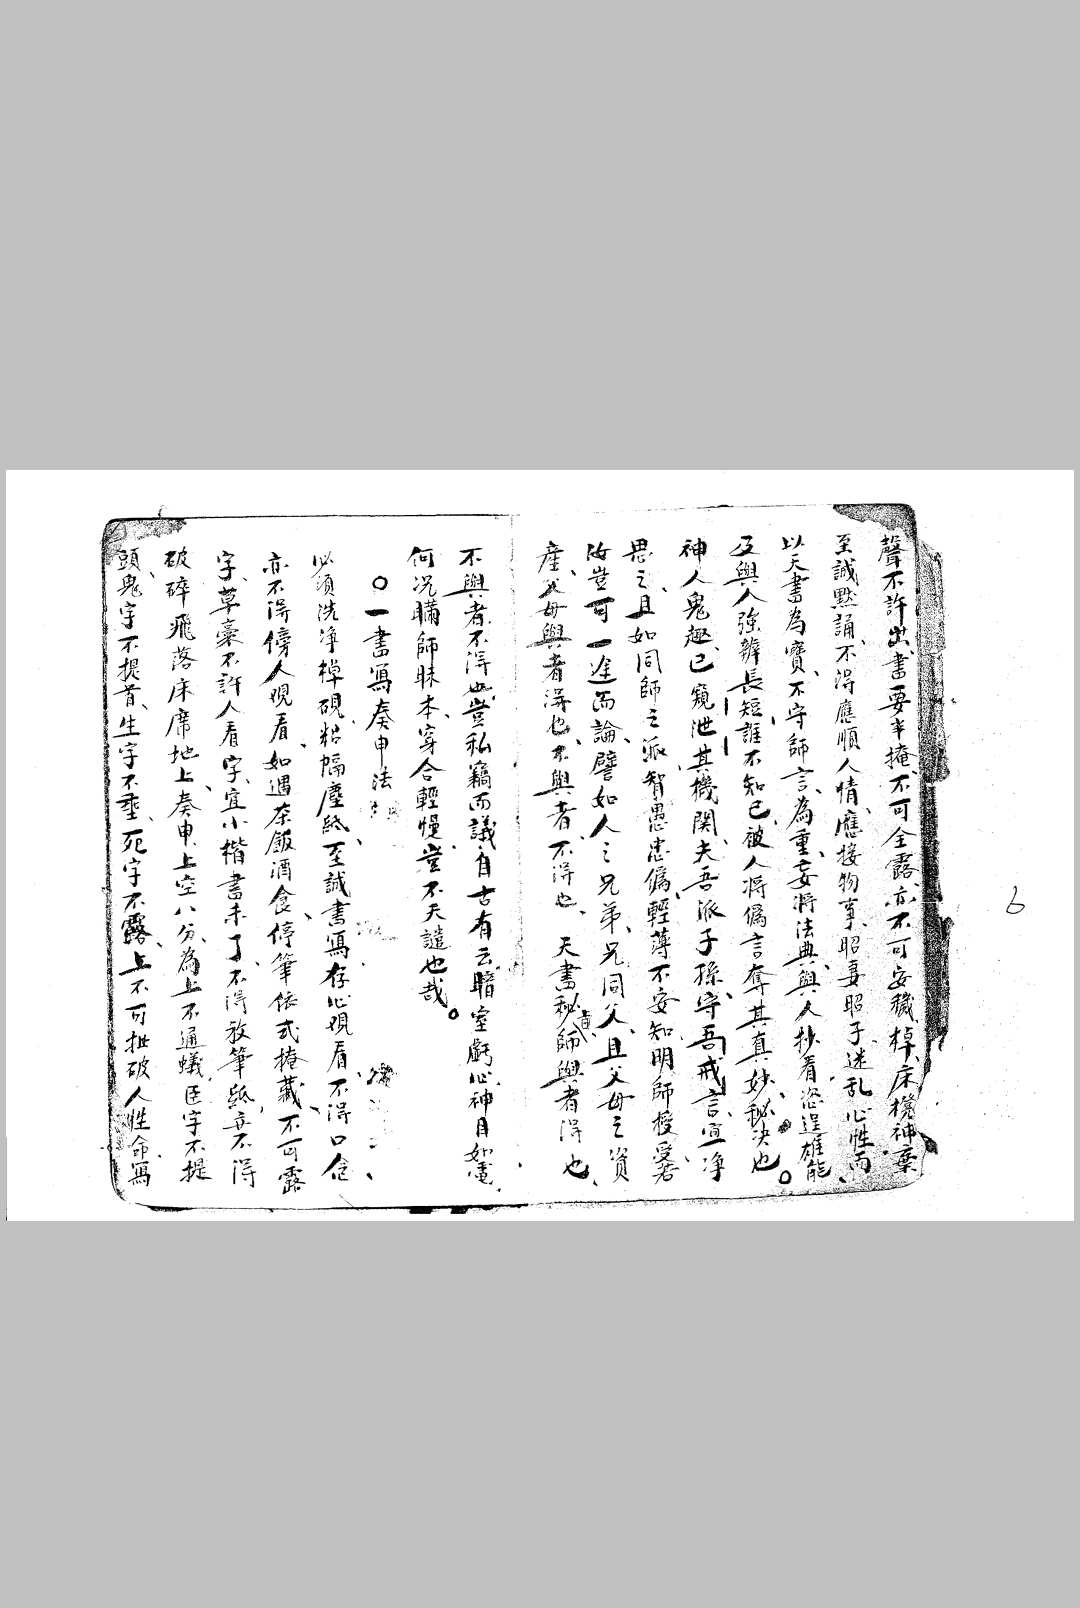 聲不許出、書要半掩、不可全露、亦不可安穢、棹、床櫈神棄
至誠默誦、不得應順人情、應接物事、昭妻昭子、迷乱心性而、
以天書為寶、不守師言、為重、妄將法典、與人抄看恣逞雄能
及與人強辨長短誰不知已、被人將偽言奪其真妙、秘决也。
神人鬼趣、已窺泄其機関、夫吾派子孫、守吾戒言、宜净
思之、且如同師之派、智愚忠偽、輕薄不安、知明師授受若
汝豈可一途而論、譬如人之兄弟、兄同父、且父母之資
產、父母與者得也、不與者、不得也、天書秘師與者得也、
真
不與者、不得也、豈私竊而議、自古有云、暗室虧心、神目如電、
何况瞞師昧本、穿合輕慢、豈不天譴也哉。
○一書寫奏申法
必須洗净棹硯、粘幅塵紙、至誠書寫存心覌看、不得口念、
亦不得傍人覌看、如遇茶飯酒食、停筆依式掩藏、不可露
字、草稾不許人看字、宜小楷書未了、不得放筆、紙亦不得
破碎飛落床席地上、奏申、上空八分、為上不通蟻、臣字不提
頭、鬼字不提首、生字不垂、死字不露、上不可扯破人性命、寫
6